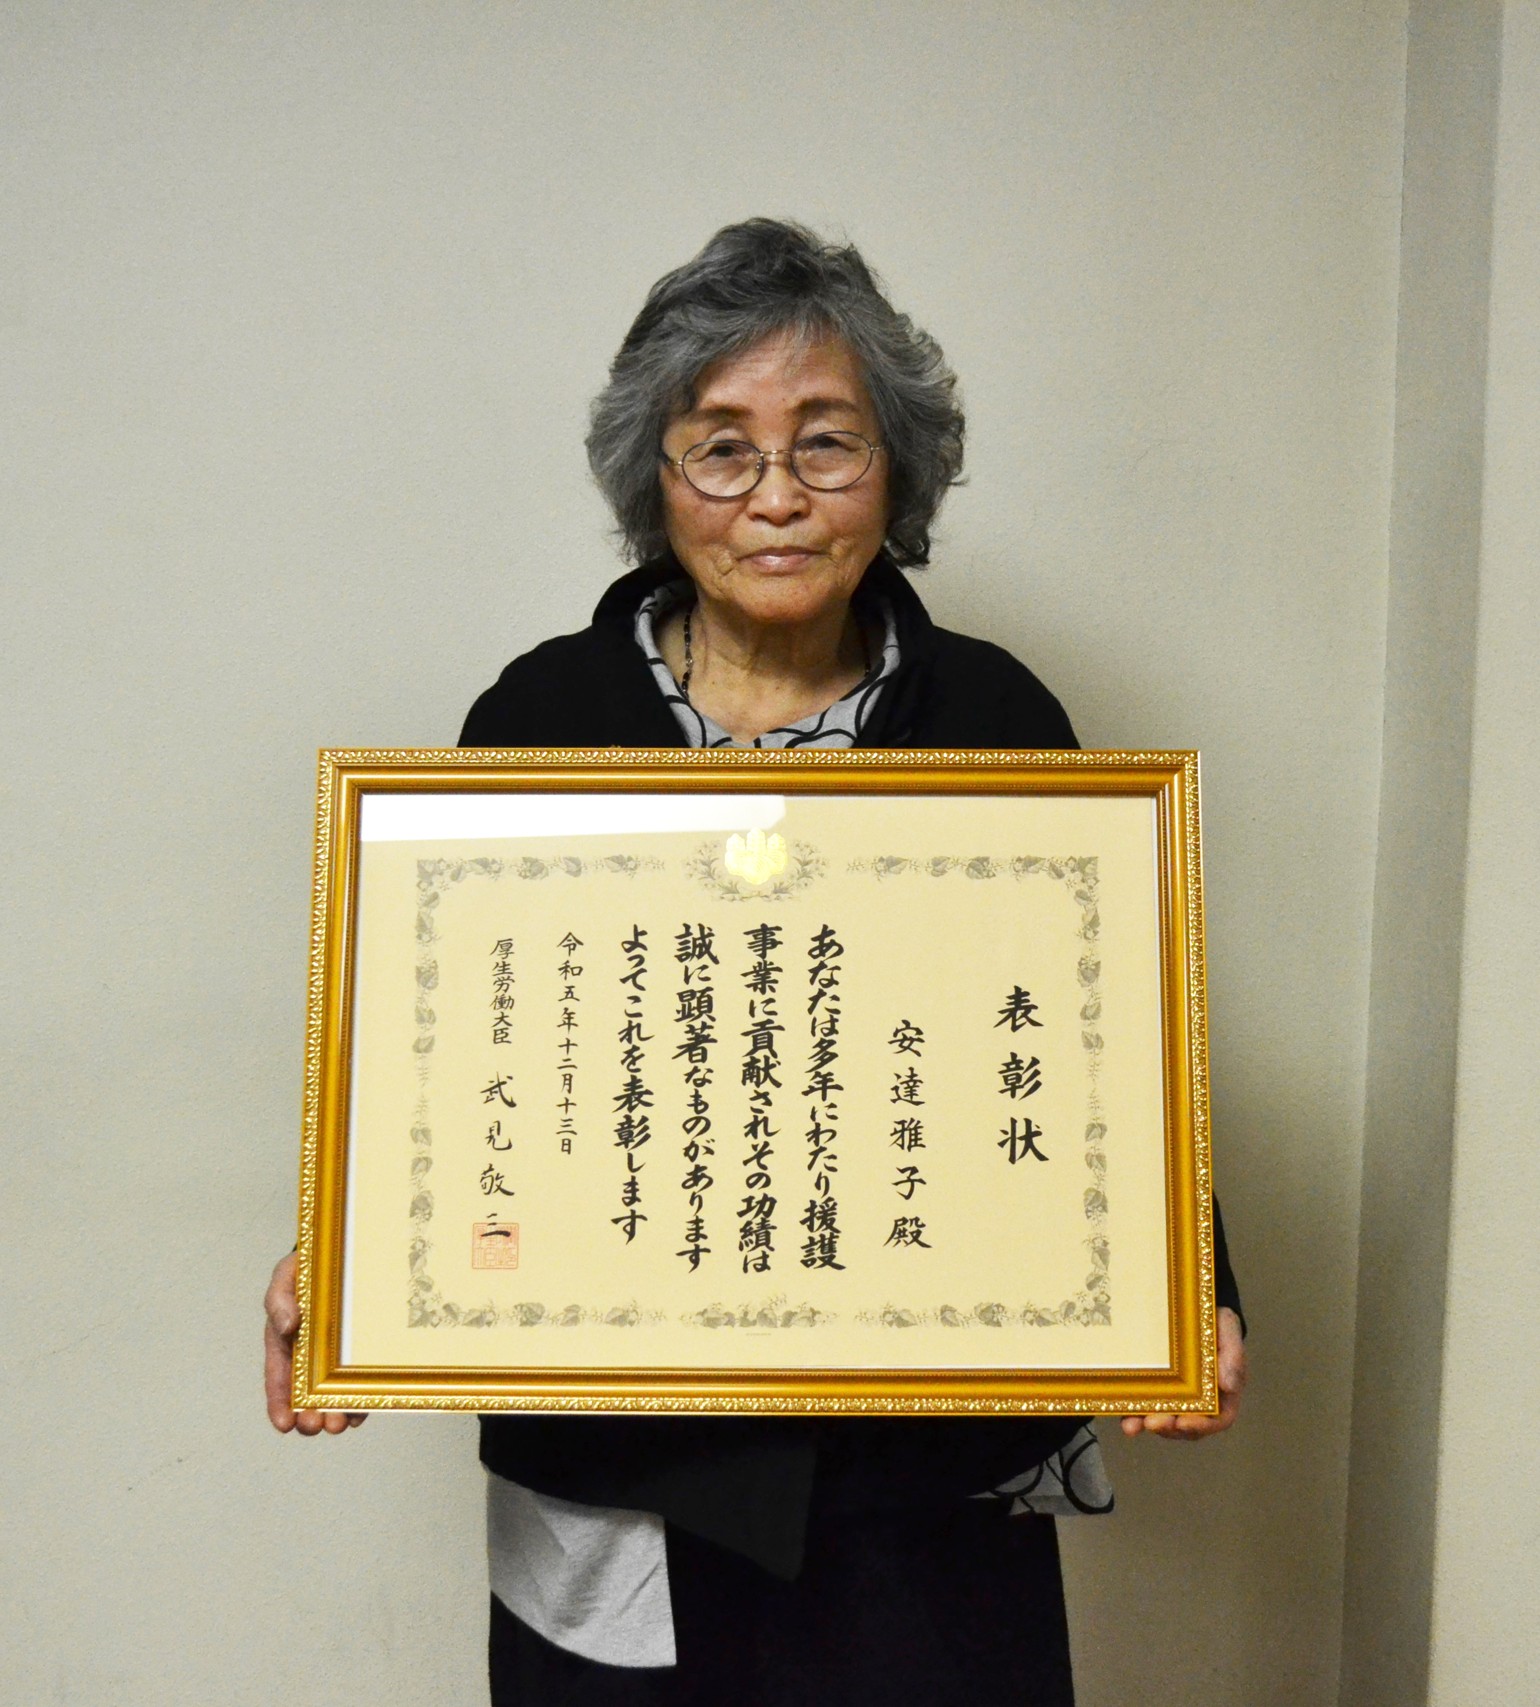 表彰状
安達雅子殿
あなたは多年にわたり援護
事業に貢献されその功績は
誠に顕著なものがあります
よってこれを表彰します
令和五年十二月十三日
厚生労働大臣 武見敬三